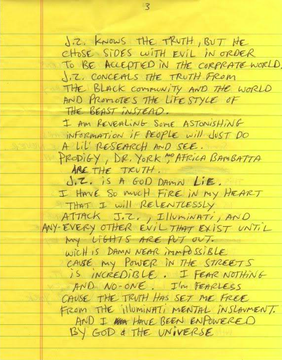 3
J.Z. KNOWS THE TRUTH, BUT HE
CHOSE SIDES WITH EVIL IN ORDER
TO BE ACCEPTED IN THE CORPRATE WORLD,
J.Z. CONCEALS THE TRUTH FROM
THE BLACK COMMUNITY AND THE WORLD
AND PROMOTES THE LIFESTYLE OF
THE BEAST INSTEAD.
I AM REVEALING SOME ASTONISHING
INFORMATION IF PEOPLE WILL JUST DO
A LIL' RESEARCH AND SEE.
PRODIGY, DR. YORK AND AFRICA BAMBATTA
ARE THE TRUTH.
J.Z. IS A GOD DAMN LIE.
I HAVE SO MUCH FIRE IN MY HEART
THAT I WILL RELENTLESSLY
ATTACK J.Z., ILLUMINATI, AND
ANY-EVERY OTHER EVIL THAT EXIST UNTIL
MY LIGHTS ARE PUT OUT.
WICH IS DAMN NEAR IMPOSSIBLE
CAUSE MY POWER IN THE STREETS
IS INCREDIBLE. I FEAR NOTHING
AND NO-ONE. I'M FEARLESS
CAUSE THE TRUTH HAS SET ME FREE
FROM THE ILLUMINATI MENTAL INSLAVMENT.
AND I HAVE BEEN ENPOWERED
BY GOD & THE UNIVERSE